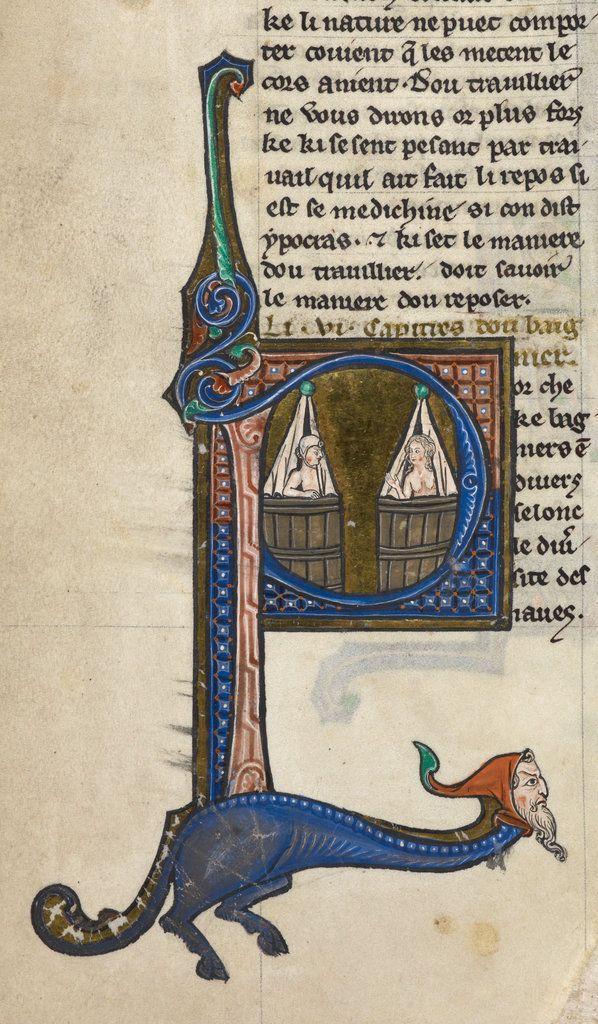 ke li nature ne puet compor
ter couient q̃ les mecent le
cors auient. Dou trauillier
ne vous dirons or plus fors
ke ki se sent pesant par trai
uail quil ait fait li repos si
est se medichine si con dist
ypocras. ⁊ ki set le maniere
dou trauillier. doit sauoir
le maniere dou reposer.
Li. vi. Capitres dou baig
nier.
or che
ke bag
niers ē
diuers
selonc
le diũ
site des
iaues.